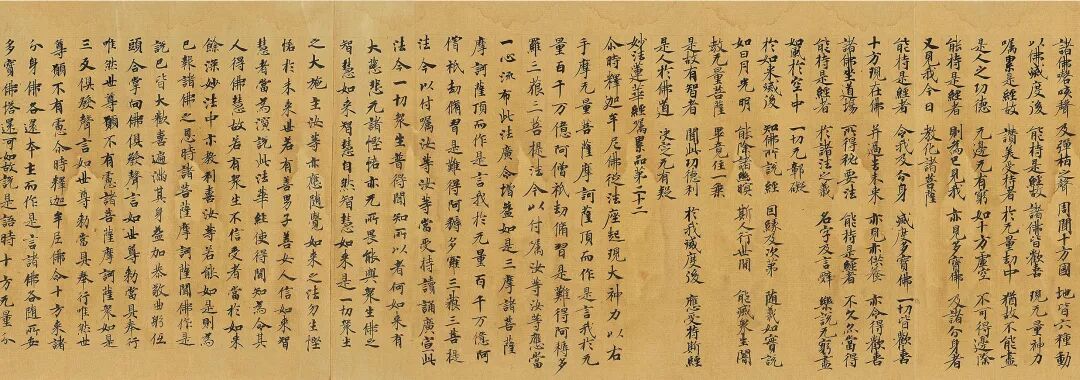 諸佛謦欬聲 及彈指之聲 周聞十方國 地皆六種動
以佛滅度後 能持是經故 諸佛皆歡喜 現无量神力
囑累是經故 讚美受持者 於无量劫中 猶故不能盡
是人之功德 无邊无有窮 如十方虛空 不可得邊際
能持是經者 則為已見我 亦見多寶佛 及諸分身者
又見我今日 教化諸菩薩
能持是經者 令我及分身 滅度多寶佛 一切皆歡喜
十方現在佛 并過去未來 亦見亦供養 亦令得歡喜
諸佛坐道場 所得秘要法 能持是經者 不久亦當得
能持是經者 於諸法之義 名字及言辭 樂說无窮盡
如風於空中 一切无鄣礙
於如來滅後 知佛所說經 因緣及次第 隨義如實說
如日月光明 能除諸幽冥 斯人行世間 能滅眾生闇
教无量菩薩 畢竟住一乘
是故有智者 聞此功德利 於我滅度後 應受持斯經
是人於佛道 決定无有疑
妙法蓮華經囑累品第二十二
尒時釋迦牟尼佛從法座起現大神力以右
手摩无量菩薩摩訶薩頂而作是言我於无
量百千万億阿僧祇劫修習是難得阿耨多
羅三藐三菩提法今以付囑汝等汝等應當
一心流布此法廣令增益如是三摩諸菩薩
摩訶薩頂而作是言我於无量百千万億阿
僧祇劫修習是難得阿耨多羅三藐三菩提
法今以付囑汝等汝等當受持讀誦廣宣此
法令一切眾生普得聞知所以者何如來有
大慈悲无諸慳悋亦无所畏能與眾生佛之
智慧如來智慧自然智慧如來是一切眾生
之大施主汝等亦應隨學如來之法勿生慳
悋於未來世若有善男子善女人信如來智
慧者當為演說此法華經使得聞知為令其
人得佛慧故若有眾生不信受者當於如來
餘深妙法中示教利喜汝等若能如是則為
已報諸佛之恩時諸菩薩摩訶薩聞佛作是
說已皆大歡喜遍滿其身益加恭敬曲躬低
頭合掌向佛俱發聲言如世尊勅當具奉行
唯然世尊願不有慮諸菩薩摩訶薩眾如是
三反俱發聲言如世尊勅當具奉行唯然世
尊願不有慮尒時釋迦牟尼佛令十方來諸
分身佛各還本土而作是言諸佛各隨所安
多寶佛塔還可如故說是語時十方无量分